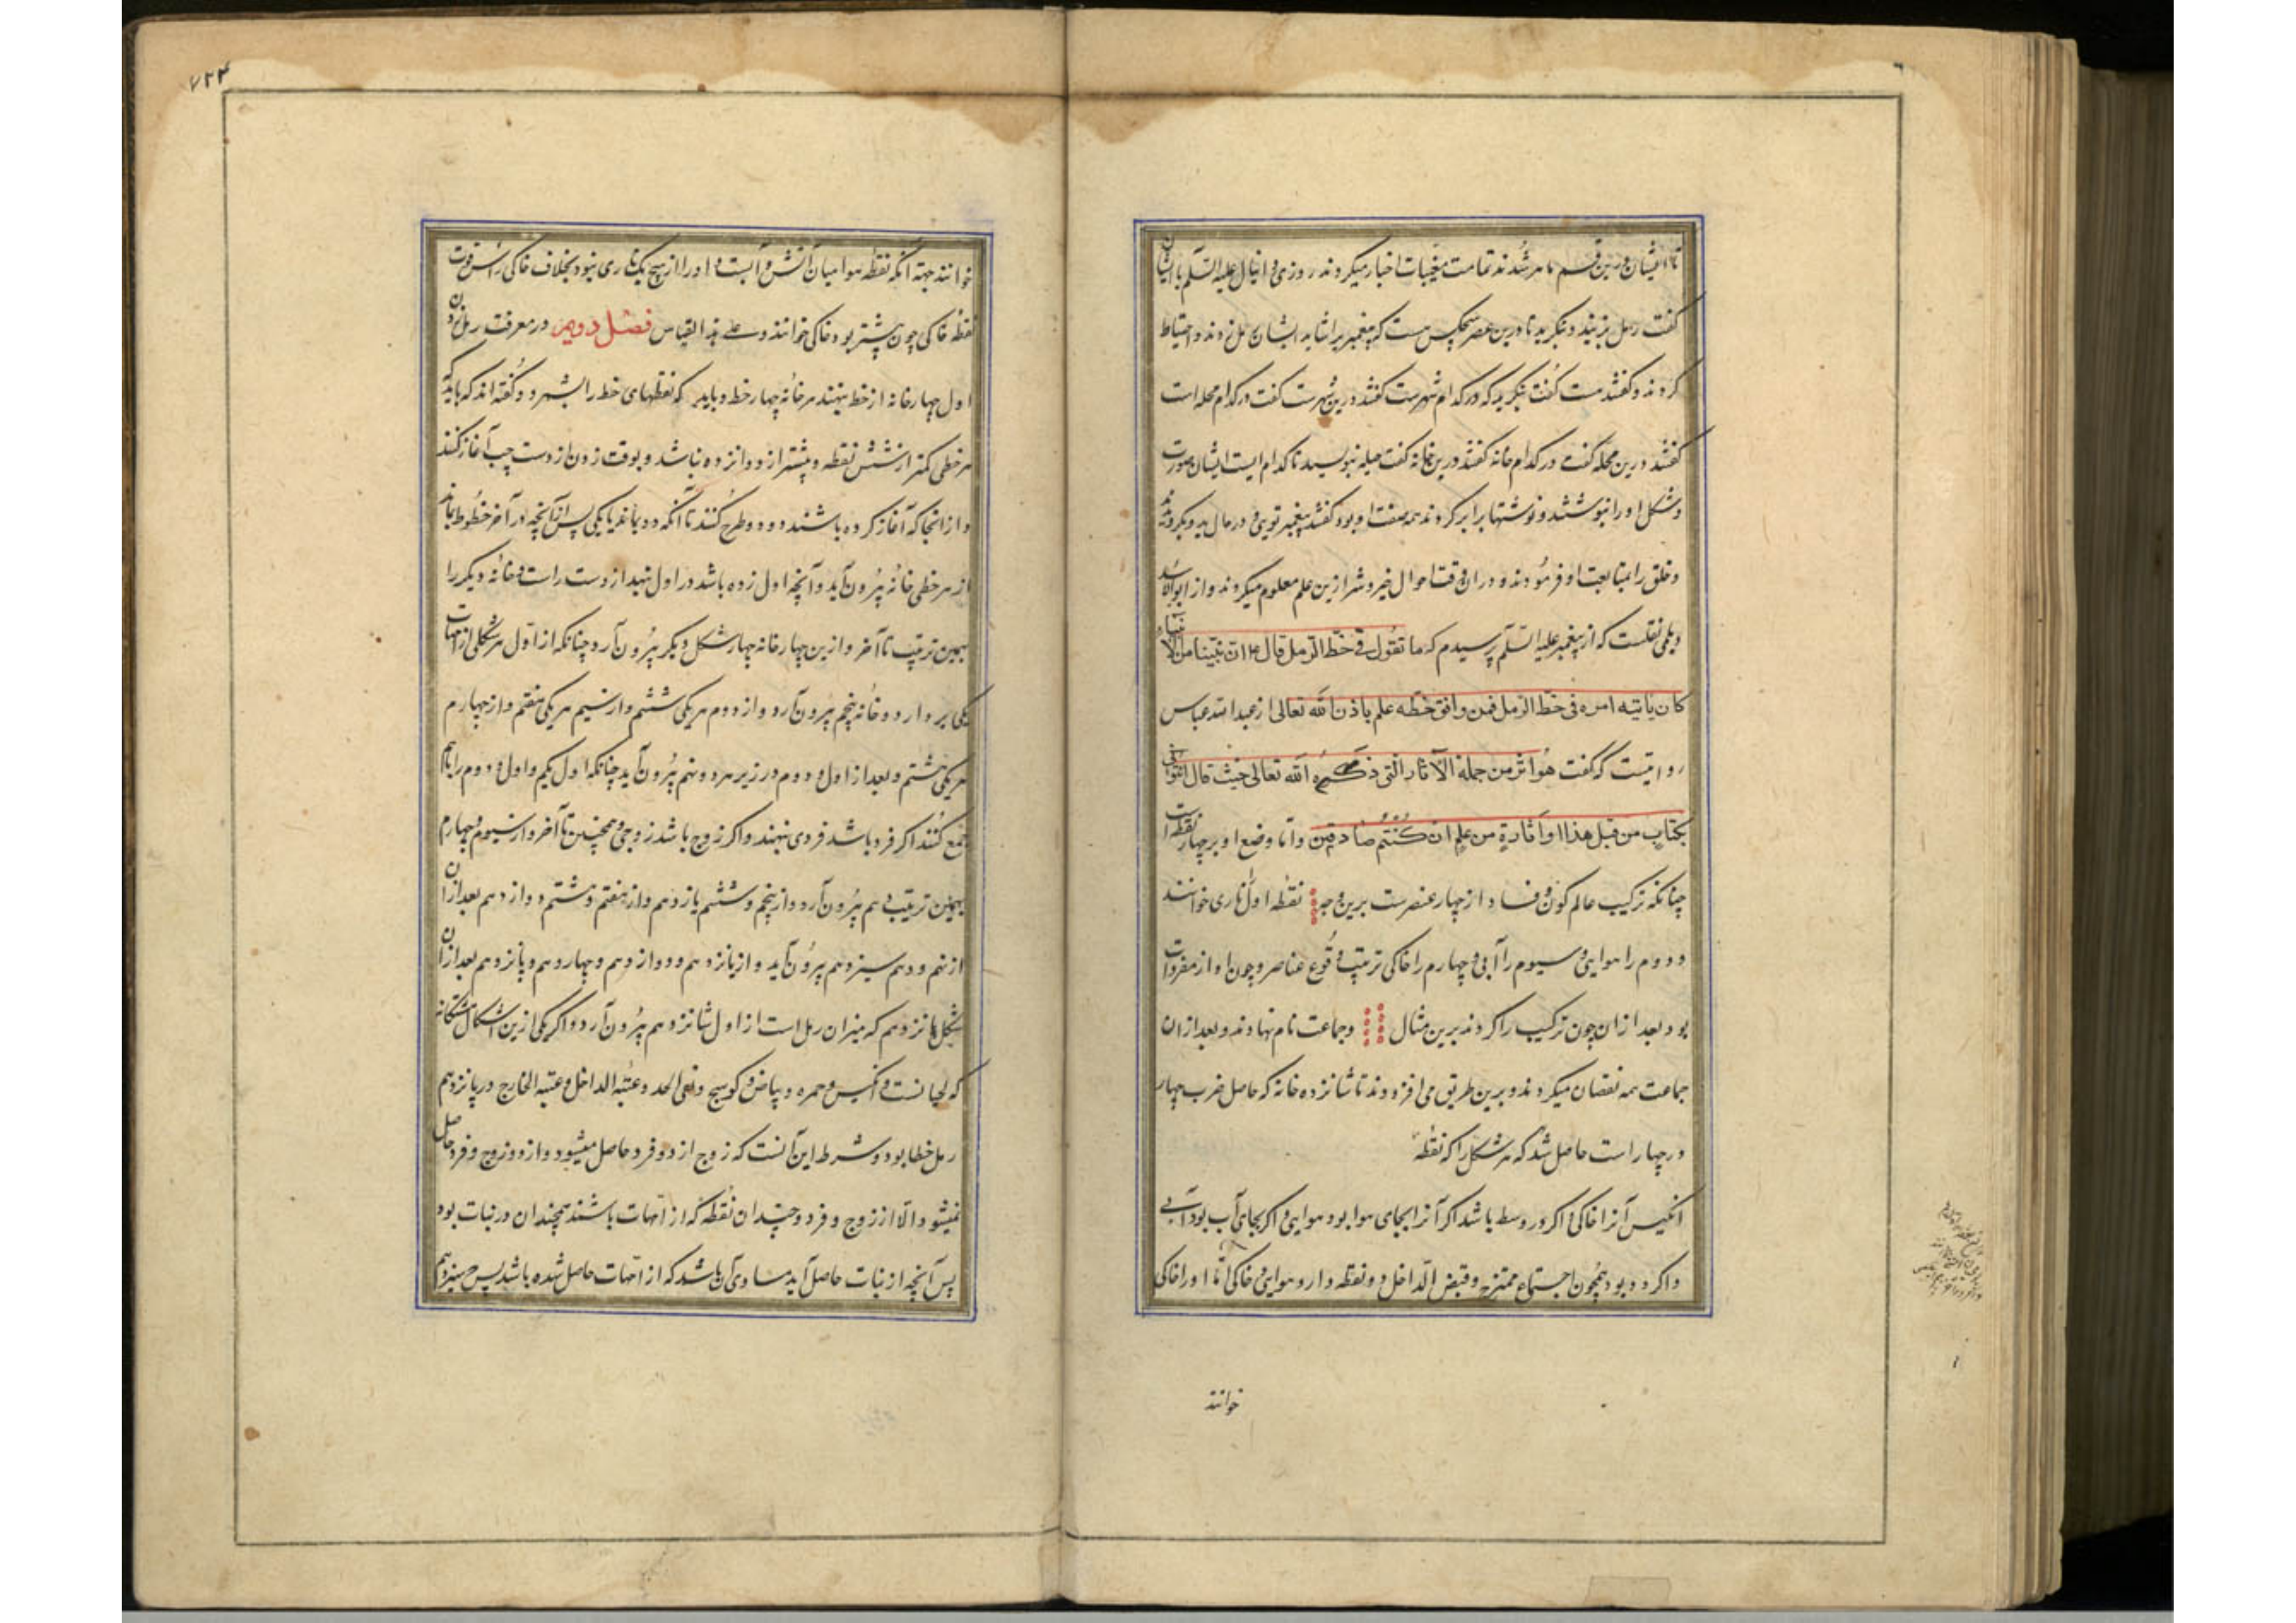 تا ایشان درین قسم ماهر شدند تمامت مغیبات اخبار میکردند روزی دانیال علیه السّلم با ایشان
گفت رمل بزنید و بنگرید تا درین عصر هیچکس هست که پیغمبری را شاید ایشان رمل زدند و احتیاط
کردند و گفتند هست گفت بنگرید که در کدام شهرست گفتند درین شهرست گفت در کدام محله است
گفتند درین محله گفت در کدام خانه گفتند درین خانه گفت حلیه بنویسید تا کدام است ایشان صورت
و شکل او را نبوشتند و نوشتها برابر کردند همه صفت او بود گفتند پیغمبر تویی در حال بدو بگرویدند
و خلق را بمتابعت او فرمودند و دران وقت احوال خیر و شر ازین علم معلوم میکردند و از ابوالاسد
دیلمی نقلست که از پیغمبر علیه السّلم پرسیدم که ما تقول فی خطّ الرّمل قال ان نبیّنا من الانبیاء
کان یأتیه امره فی خطّ الرّمل فمن وافق خطّه علم باذن الله تعالی از عبدالله عباس
روایتست که گفت هو اثر من جملة الآثار الّتی ذکره الله تعالی حیث قال ائتونی
بکتاب من قبل هذا او اثارة من علم ان کنتم صادقین و اما وضع او بر چهار نقطه است
چنانکه ترکیب عالم کون و فساد از چهار عنصرست برین وجه نقطه اول ناری خوانند
و دوم را هوایی و سیوم را آبی و چهارم را خاکی ترتیب وقوع عناصر و چون او از مفردات
بود بعد از ان چون ترکیب را کردند برین مثال و جماعت نام نهادند و بعد از ان
جماعت همه نقصان میکردند و برین طریق می افزودند تا شانزده خانه که حاصل ضرب چهار
در چهار است حاصل شد که هر شکل را که نقطه
انکیس آنرا خاکی اگر در وسط باشد اگر آنرا بجای هوا بود هوایی و اگر بجای آب بود آبی
و اگر دو بود همچون اجتماع ممتزج و قبض الدّاخل دو نقطه دارد هوایی و خاکی امّا او را خاکی
خوانند
۷۲۴
خوانند جهة آنکه نقطه هوا میان آتش و آبست و او را از هیچ یک یاری نبود بخلاف خاکی راست قوت
نقطه خاکی چون بیشتر بود خاکی خوانند و علی هذا القیاس فصل دویم در معرفت رمل زدن
اول چهار خانه از خط بنهند هر خانه چهار خط و باید که نقطهای خط را بشمرد و گفته اند که باید که
هر خطی کمتر از شش نقطه و بیشتر از دوانزده نباشد و بوقت زدن از دست چپ آغاز کنند
و از انجا که آغاز کرده باشند دو دو طرح کنند تا آنکه دو بماند یا یکی پس از آنچه در آخر خطوط بماند
از هر خطی خانه بیرون آید و آنچه اول زده باشد در اول نهد از دست راست و خانه دیگر را
بهمین ترتیب تا آخر و ازین چهار خانه چهار شکل دیگر بیرون آرد چنانکه از اول هر شکلی از امهات
یکی بردارد و خانه پنجم بیرون آرد و از دوم هر یکی ششم و از سیم هر یکی هفتم و از چهارم
هر یکی هشتم و بعد از اول و دوم در زیر هر دو نهم بیرون آید چنانکه اول یکم و اول دوم را باهم
جمع کنند اگر فرد باشد فردی بنهند و اگر زوج باشد زوجی و همچنین تا آخر و از سیوم و چهارم
بهمین ترتیب دهم بیرون آرد و از پنجم و ششم یازدهم و از هفتم و هشتم دوازدهم بعد از ان
از نهم و دهم سیزدهم بیرون آید و از یازدهم و دوازدهم چهاردهم و پانزدهم بعد از ان
شکل شانزدهم که میزان رمل است از اول شانزدهم بیرون آرد و اگر یکی ازین اشکال هشتگانه
که لحیانست و انکیس و حمره و بیاض و کوسج و نقی الخد و عتبة الداخل و عتبة الخارج در پانزدهم
رمل خطا بود و شرط این آنست که زوج از دو فرد حاصل میشود و از دو زوج و فرد حاصل
نمیشود الّا از زوج و فرد و چندان نقطه که از امّهات باشند همچندان در نبات بود
پس آنچه از نبات حاصل آید مساوی آن باشد که از امّهات حاصل شده باشد پس سیزدهم